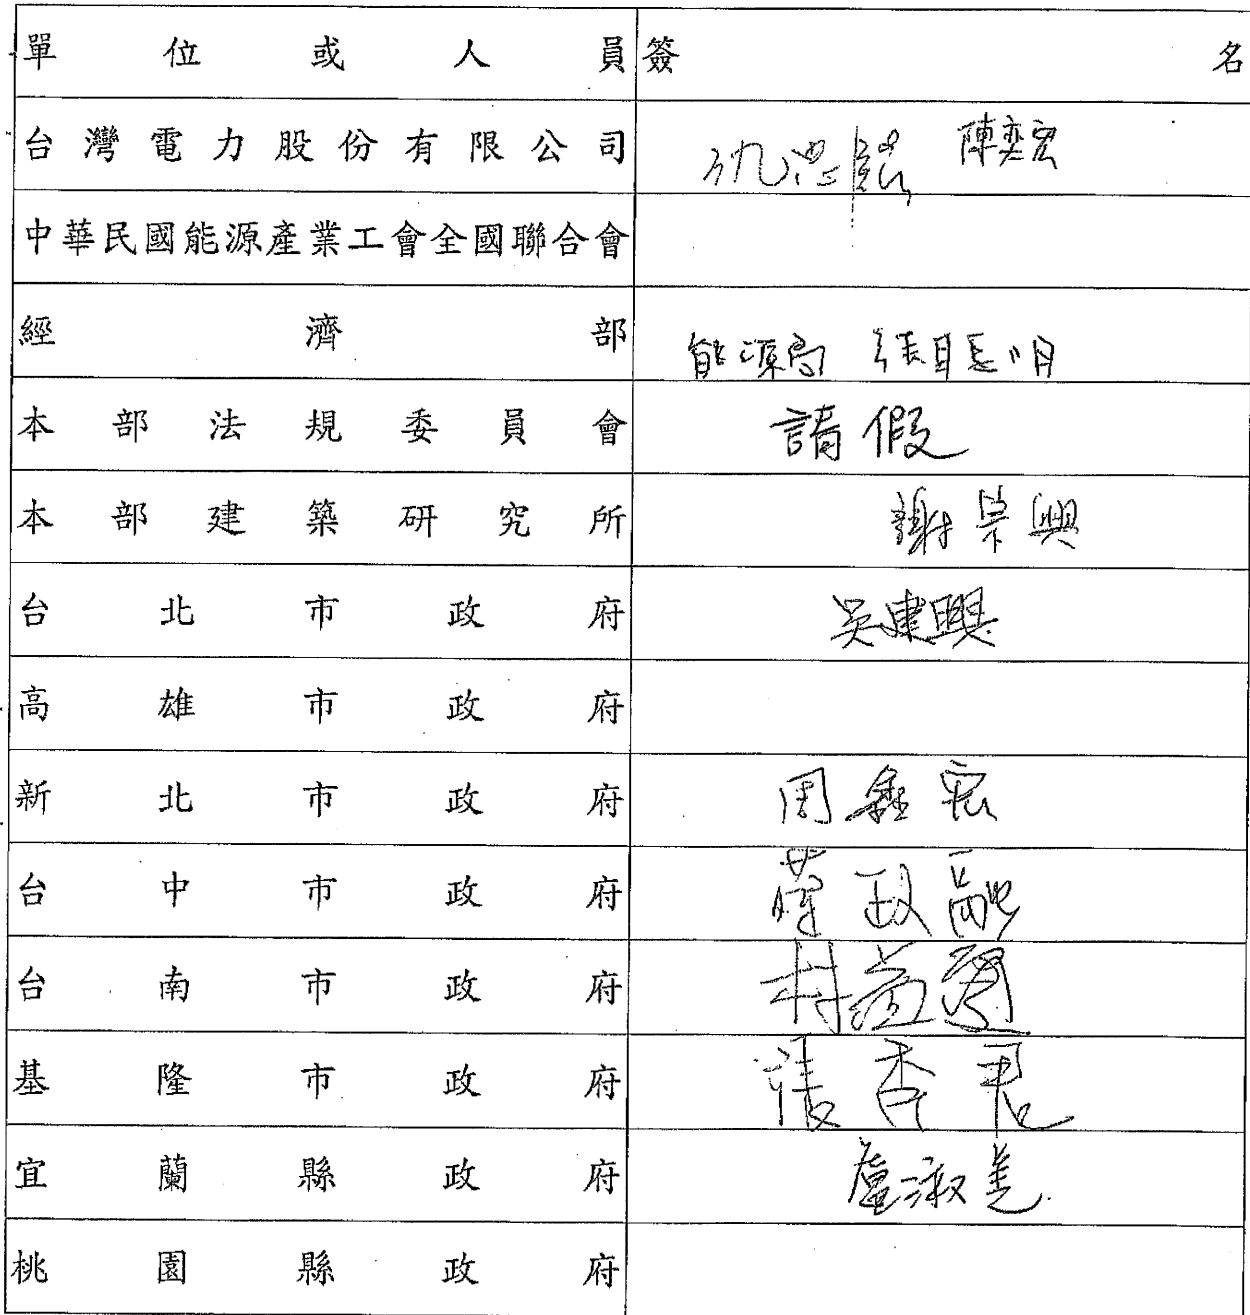 單位或人員 簽名
台灣電力股份有限公司 陳奕宏
中華民國能源產業工會全國聯合會
經濟部 能源局 張
本部法規委員會 請假
本部建築研究所 謝宗興
台北市政府 吳建興
高雄市政府
新北市政府 周鑫宏
台中市政府 政融
台南市政府 林益
基隆市政府 張香君
宜蘭縣政府 盧淑美
桃園縣政府